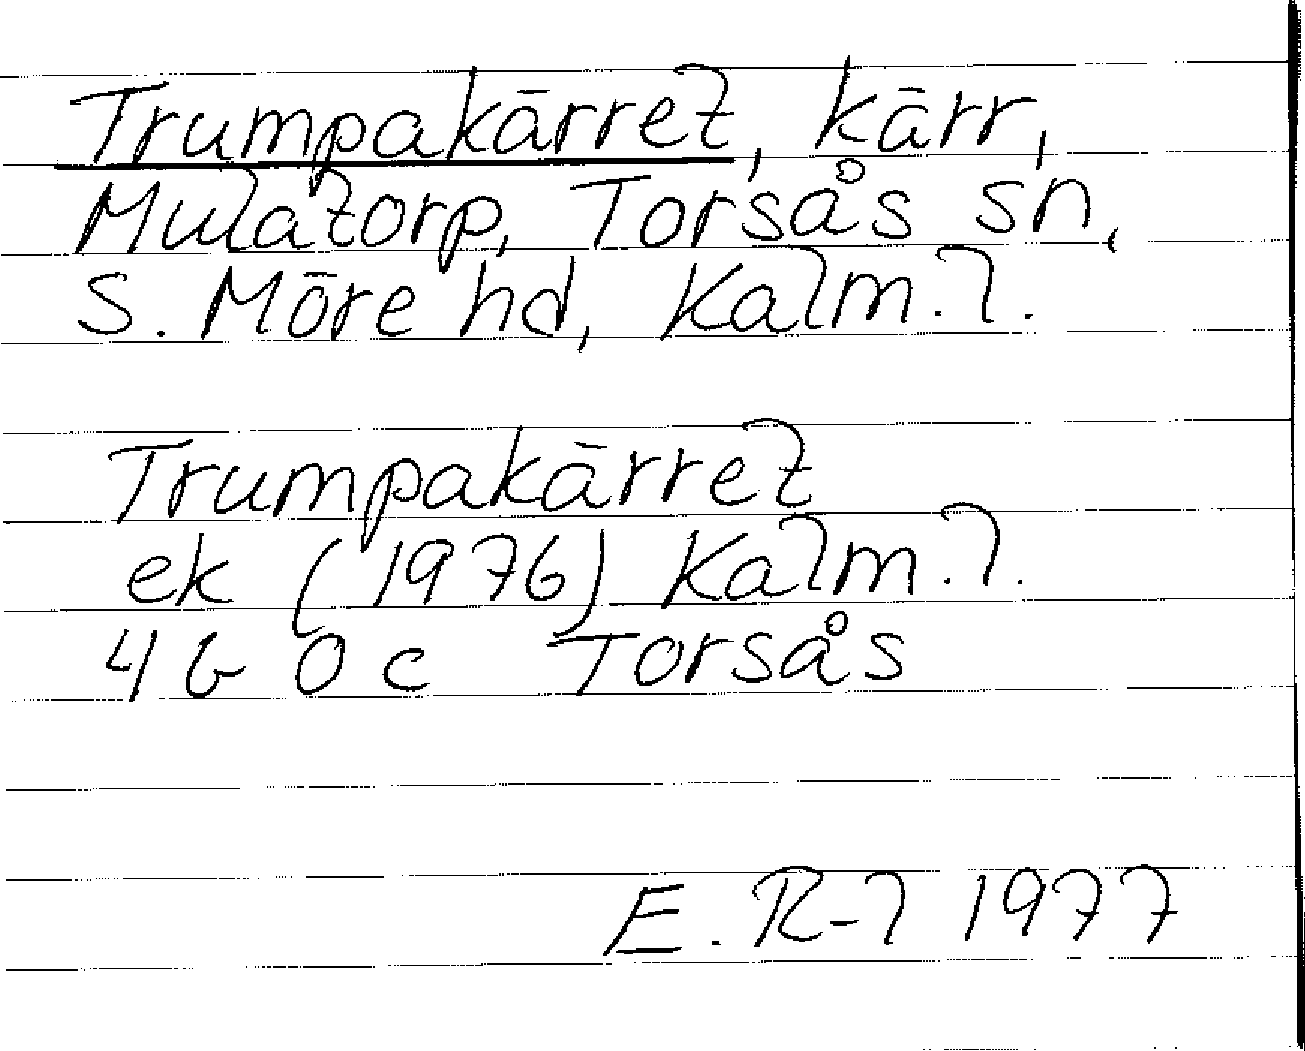 Trumpakärret, kärr,
Mulatorp, Torsås sn,
S. Möre hd, Kalm. l.
Trumpakärret
ek (1976) Kalm. l.
4 G 0 c Torsås
E. R-l 1977